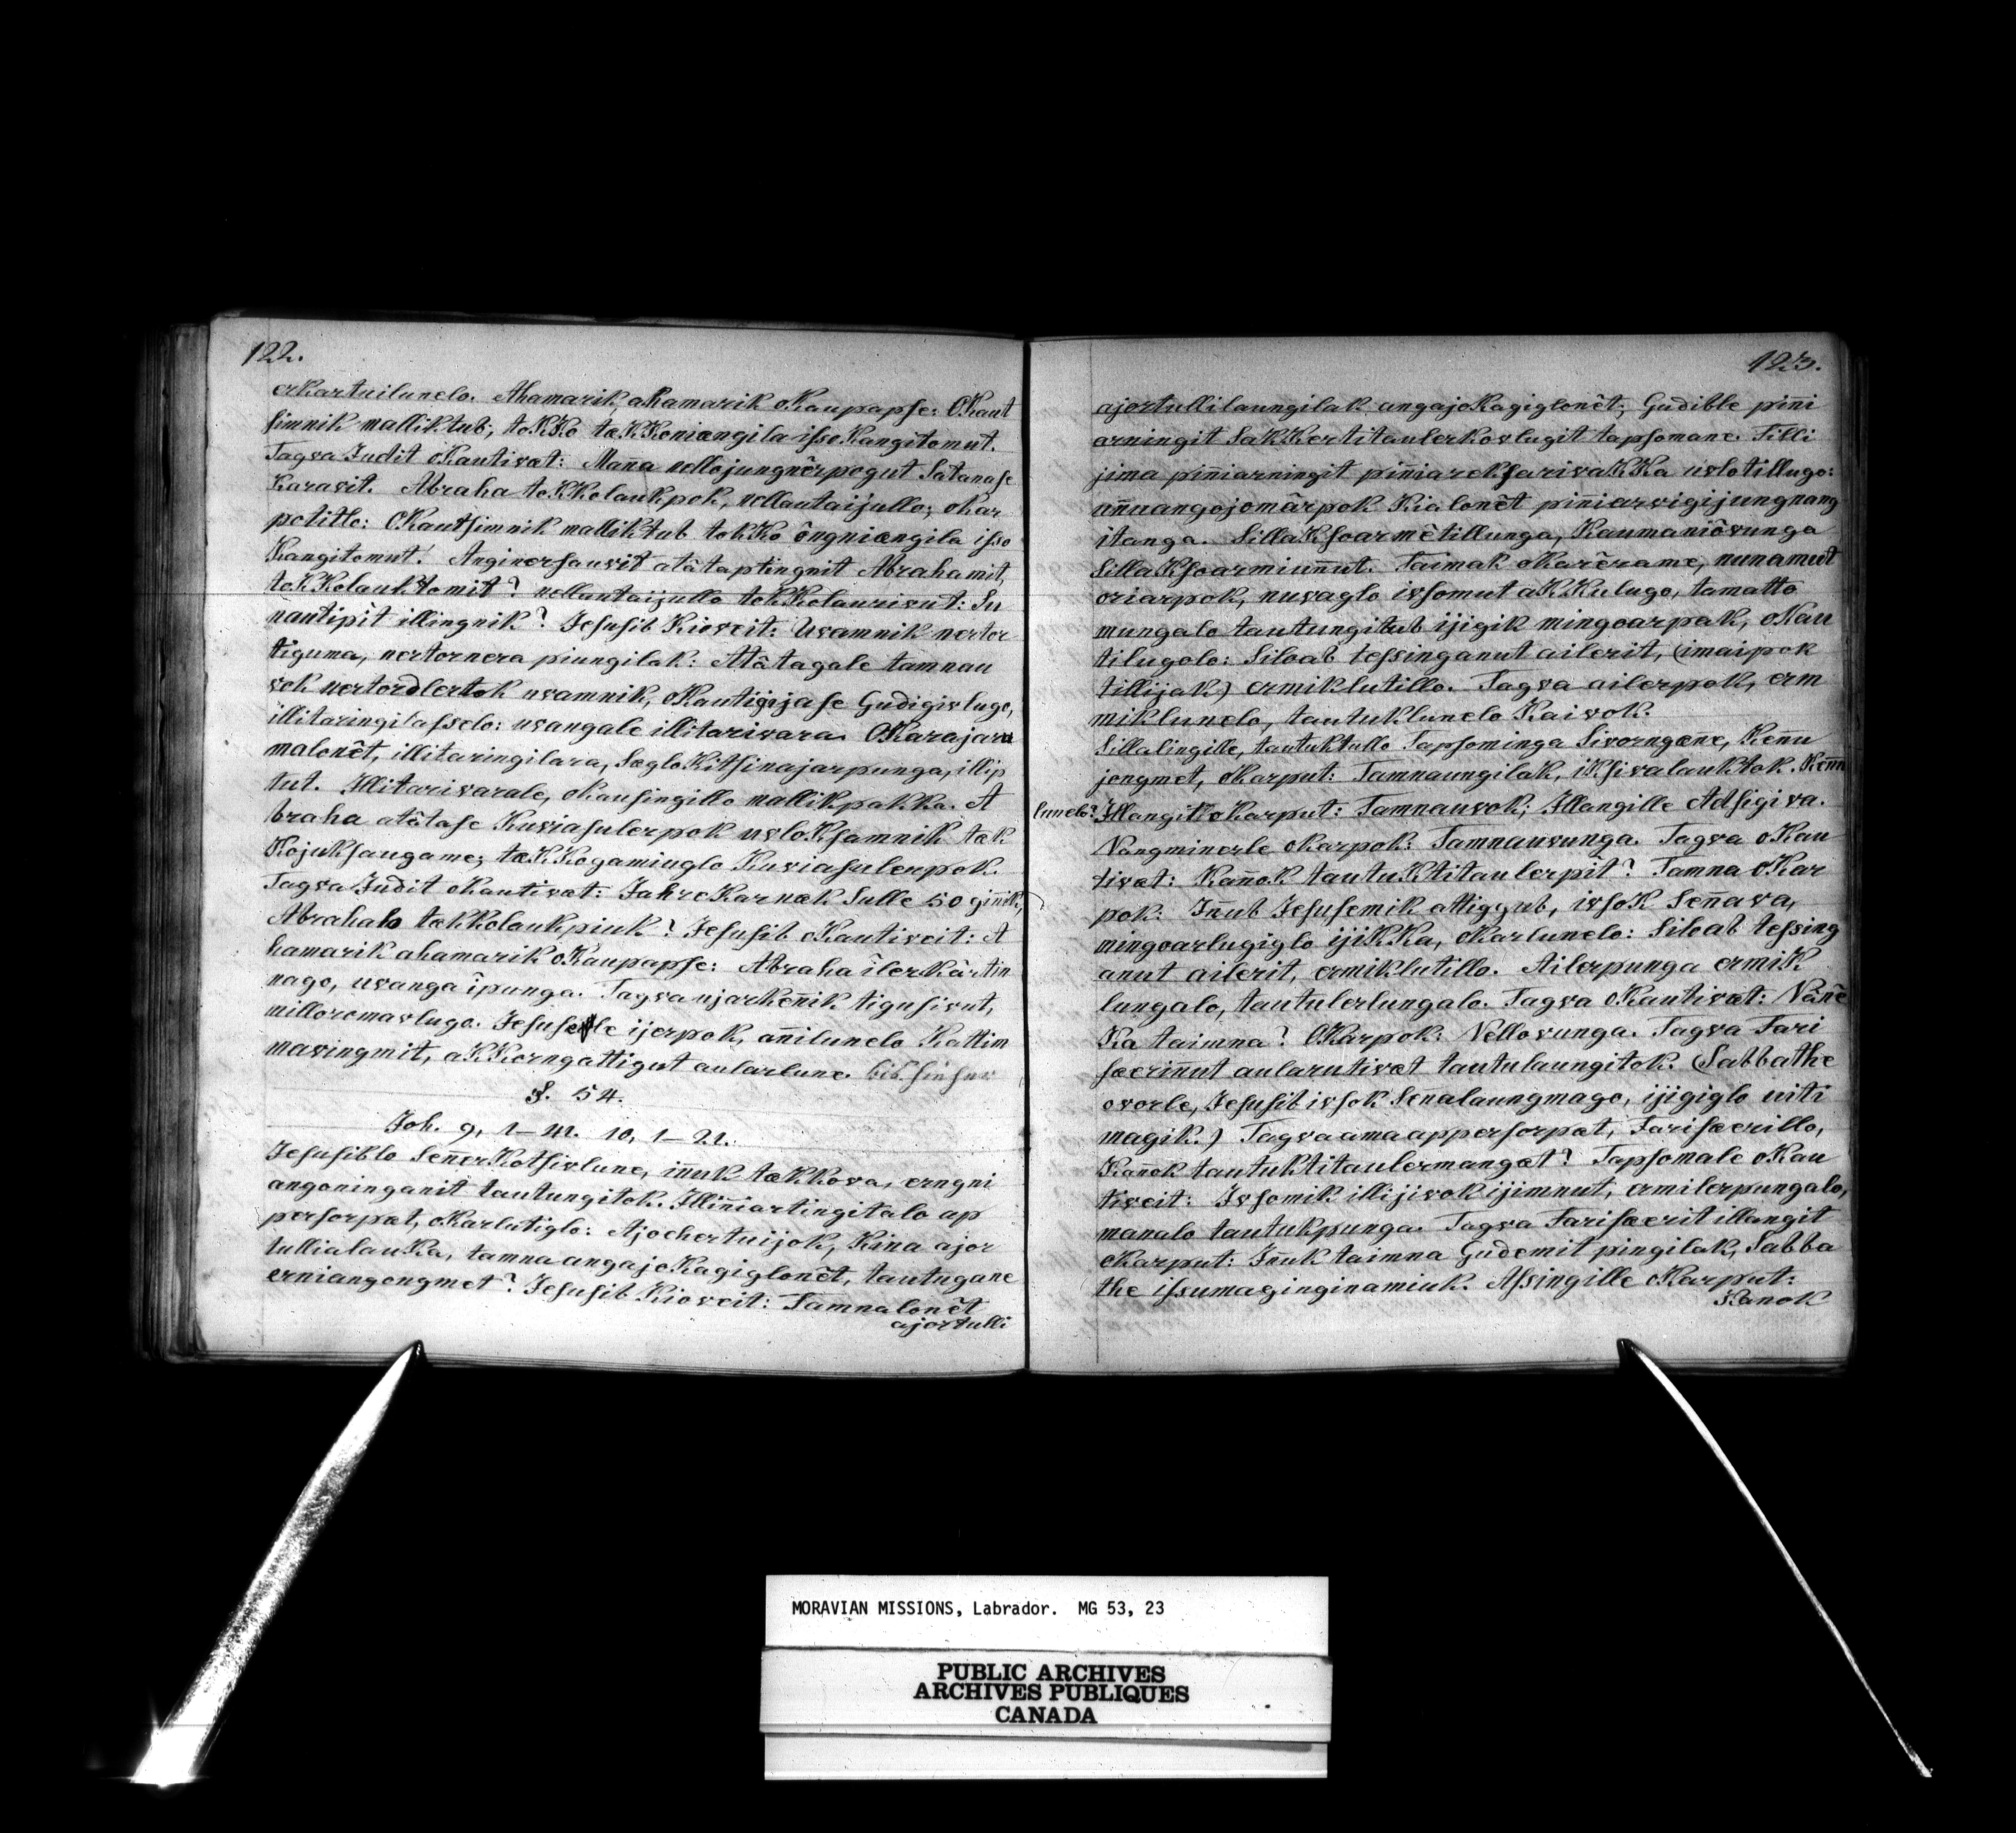 122.
erKartuilunelo. Ahamarik, ahamarik oKaupapse: OKaut
simnik malliktub, tokKo tækKoniængila issoKangitomut.
Tagva Judit oKautivæt: Manna nellojungnêrpogut Satanase
Karavit. Abraha toKKolaukpok, nellautaijullo; oKar
potitle: OKautsimnik malliktub tokKo ôngniængila isso
Kangitomut! Anginersauvit atâtaptingnit Abrahamit,
toKKolauktomit? nellautaijullo tokKolaurivut: Su
nautipit illingnik? Jesusib Kioveit: Uvamnik nertor
tiguma, nertornera piungilak: Atâtagale tamnau
vok nertordlertok uvamnik, oKautigijase Gudigivlugo,
illitaringilasselo: uvangale illitarivara. OKarajaru
malonêt, illitaringilara, sægloKitsinajarpunga, illip
tut. Illitarivarale, oKausingillo mallikpakka. A
braha atâtase Kuviasulerpok uvloKsamnik tæk
Kojuksaugame; tækKogamiuglo Kuviasulerpok.
Tagva Judit oKautivæt: JahreKarnæk sulle 50 ginnik,
Abrahalo tækkolaukpiuk? Jesusib oKautiveit: A
hamarik ahamarik oKaupapse: Abraha îlerkârtin
nago, uvanga îpunga. Tagva ujarkennik tigusivut,
milloromavlugo. Jesusele ijerpok, annilunelo Kattim
mavingmit, aKKorngattigut aularlune.
§. 54.
Joh. 9, 1-41. 10, 1-21.
Jesusiblo sennerKotsivlune, innuk tækkova, erngni
angoninganit tautungitok. Illinniartingitalo ap
persorpæt, oKarlutiglo: Ajochertuijok, Kina ajor
tullialauKa, tamna angajoKagiglonêt, tautugane
erniangongmet? Jesusib Kioveit: Tamnalonêt
ajortulli
123.
ajortullilaungilak angajoKagiglonêt; Gudible pinni
arningit saKKertitaulerkovlugit tapsomane. Tilli
jima pinniarningit pinniareksarivaKKa uvlotillugo:
unnuangojomârpok Kialonêt pinniarvigijungnang
itanga. SillaKsoarmêtillunga, Kaumaniôvunga
sillaKsoarmiunnut. Taimak oKarêrame, nunamut
oriarpok, nuvaglo ivsomut aKKulugo, tamatto
mungalo tautungitub ijigik mingoarpak, oKau
tilugolo: Siloab tessinganut ailerit, (imaipok
tillijak) ermiklutillo. Tagva ailerpok, erm
miklunelo, tautuklunelo Kaivok.
Sillalingille, tautuktullo tapsominga sivorngane, Kennu
jongmet, oKarput: Tamnaungilak, iksivalauktok. Kennu
lunelo? Illangit oKarput: Tamnauvok; Illangille Adsigiva.
Nangminerle oKarpok: Tamnauvunga. Tagva oKau
tivæt: Kannok tautuKtitaulerpît? Tamna oKar
pok: Innub Jesusemik attiggub, ivsoK sennava,
mingoarlugiglo ijiKKa, oKarlunelo: Siloab tessing
anut ailerit, ermiklutillo. Ailerpunga ermiK
lungalo, tautulerlungalo. Tagva oKautivæt: Nanê
Ka taimna? OKarpok: Nellovunga. Tagva Fari
sæerinnut aularutivæt tautulaungitok. (Sabbathe
ovorle, Jesusib ivsok senalaungmago, ijigiglo uiti
magik.) Tagva ama appersorpæt, Farisæerillo,
Kanok tautuktitaulermangæt? Tapsomale oKau
tiveit: Ivsomik illijivok ijimnut, ermilerpungalo,
manalo tautukpunga. Tagva Farisæerit illangit
oKarput: Innuk taimna Gudemit pingilak, Sabba
the issumaginginamiuk. Assingille oKarput:
Kanok
MORAVIAN MISSIONS, Labrador. MG 53, 23
PUBLIC ARCHIVES
ARCHIVES PUBLIQUES
CANADA